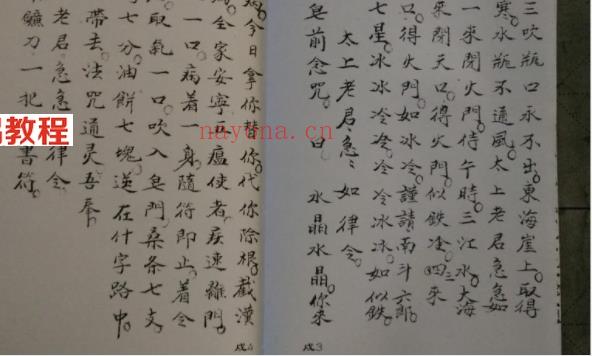 三吹瓶口永不出。東海崖上。取得
寒水瓶不通風。太上老君急急如
一來閉火門。侍午時。三江水。大海
來閉天口。得火門。似鉄冷。四三來
口。得火門。如冰冷。謹請南斗六郎。
七星。冰冷冷冷冷冰冰。如似鉄。
太上老君。急如律令。
皂前念咒。曰 水晶水晶。你來
戌3
今日拿你替你。代你除根。截漢
全家安寧。五瘟使者。疾速離門
一口。病着一身。隨符即止。着令
取氣一口。吹入皂門。桑条七支。
七分。油餅七塊。送在什字路中。
帶去。法咒通灵。吾奉。
老君急急律令。
鐮刀一把 書符。
戌4
教程
nayona.cn